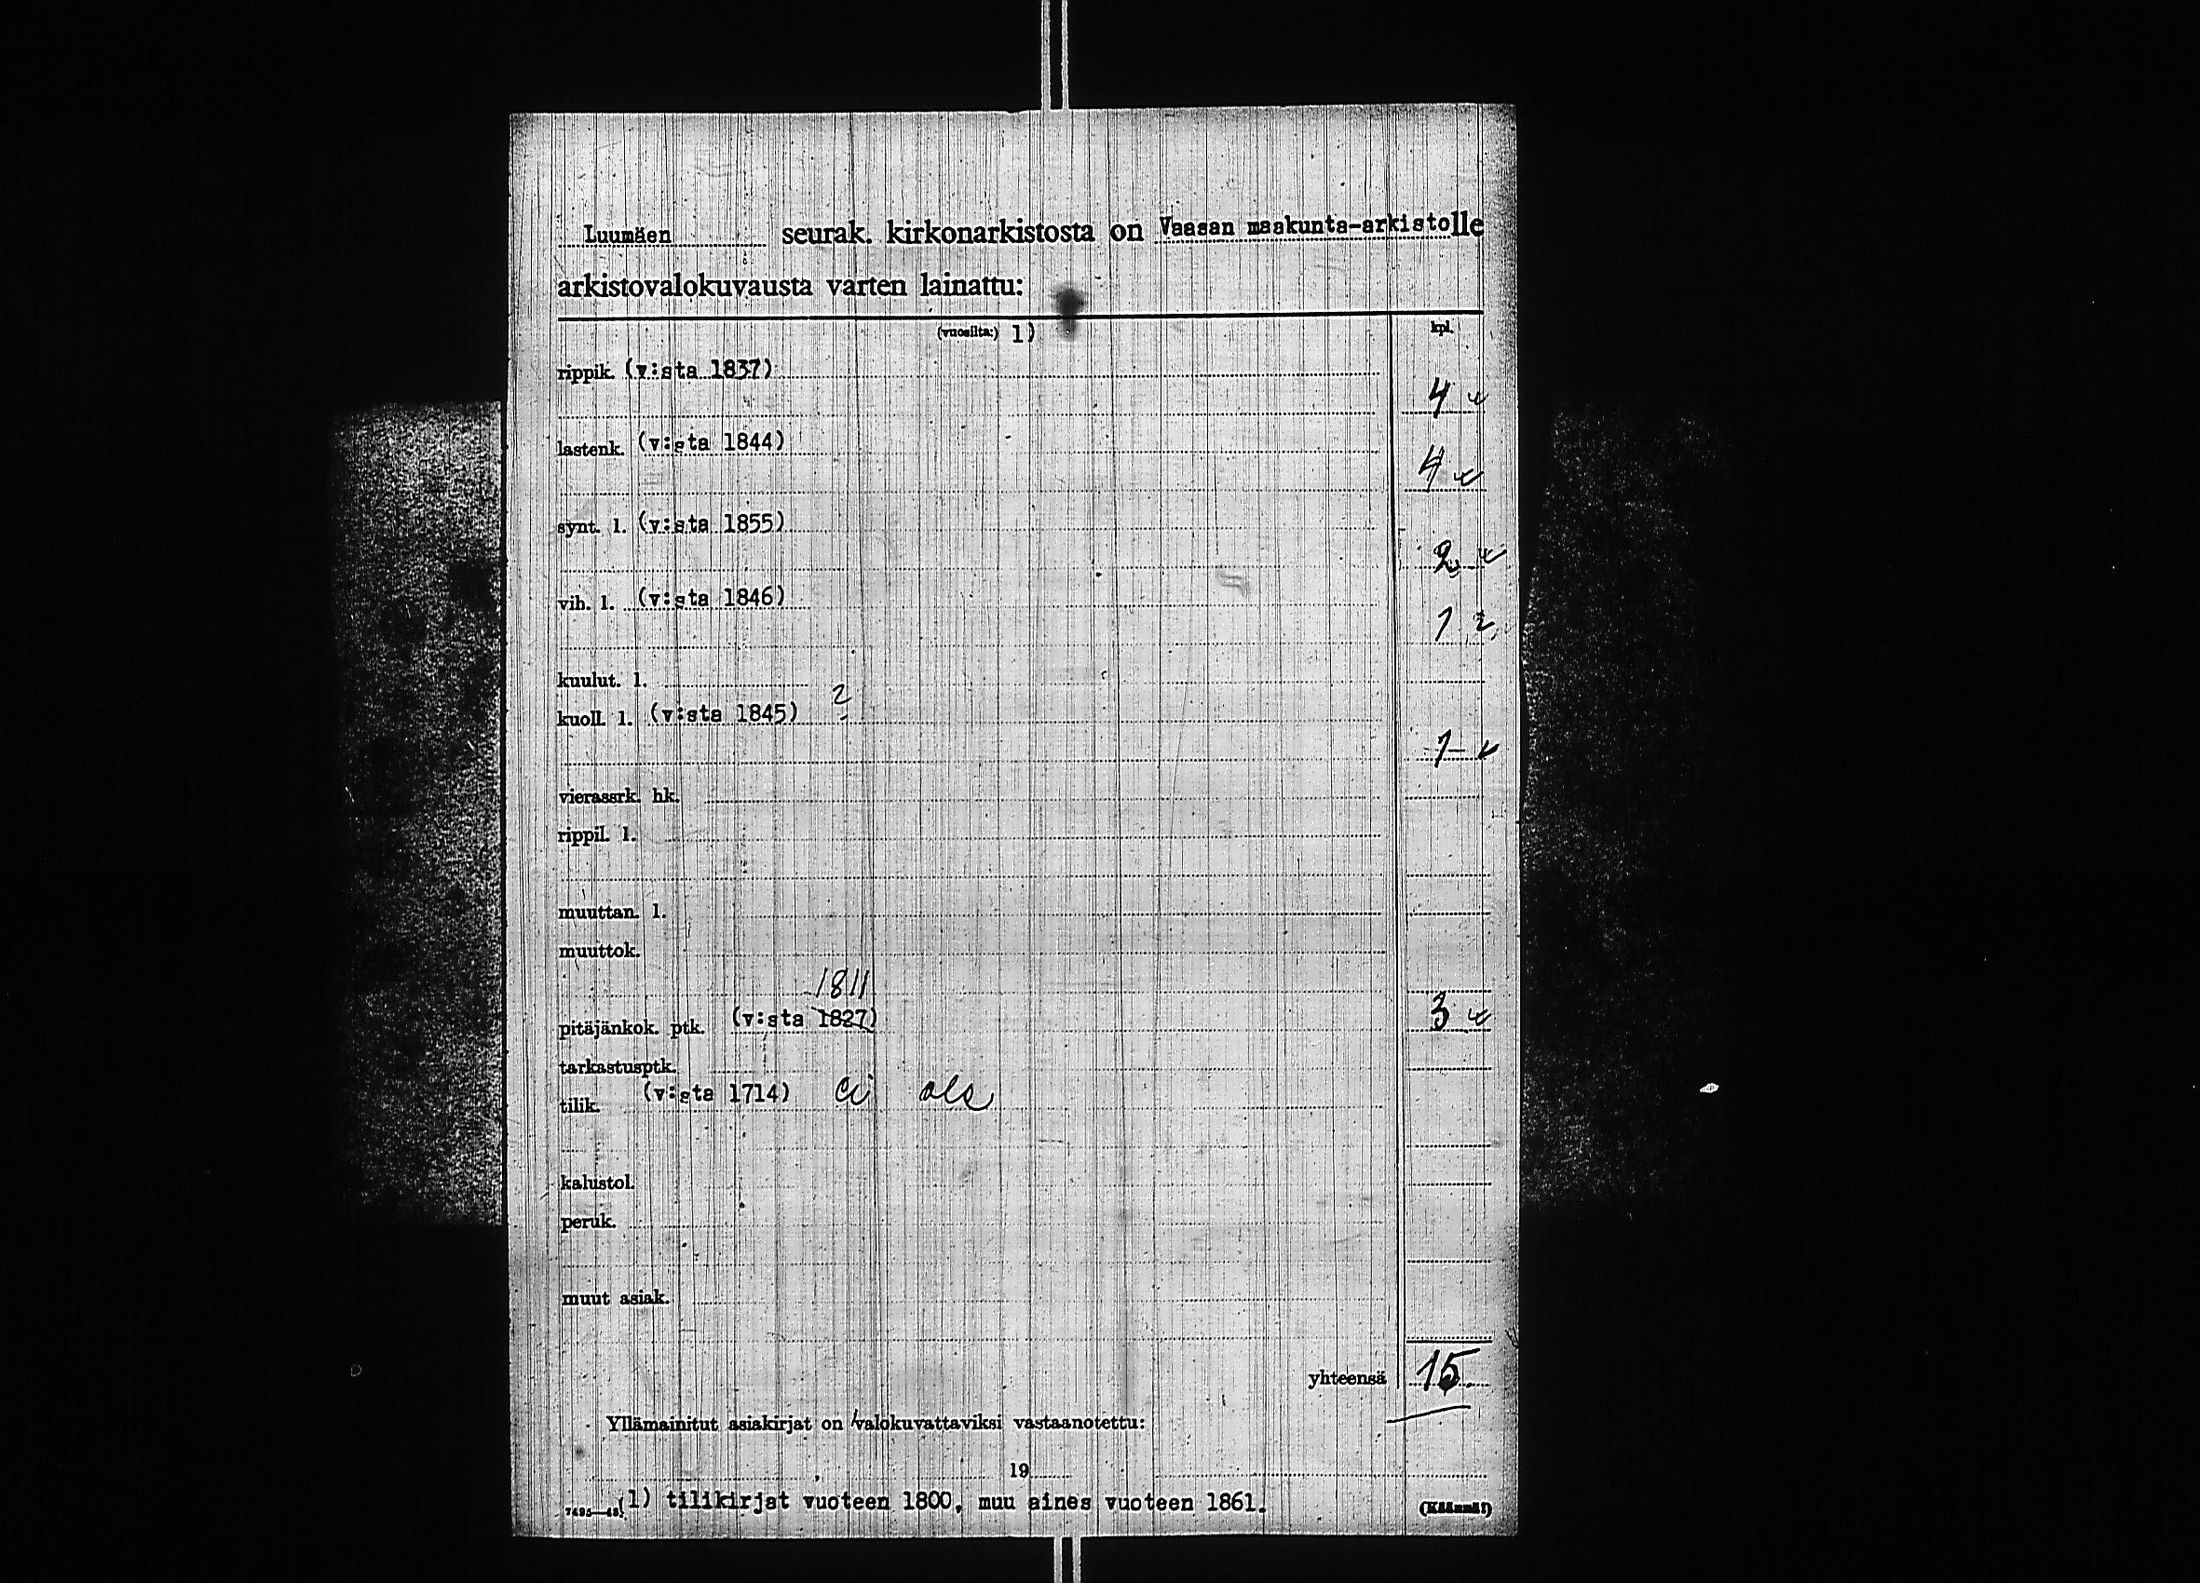 Luumäen seurak. kirkonarkistosta on Vaasan maakunta-arkistolle
arkistovalokuvausta varten lainattu:
(vuosilta:) 1) kpl.
rippik. (v:sta 1837)
4
lastenk. (v:sta 1844)
4
synt. l. (v:sta 1855)
2
vih. l. (v:sta 1846)
1
kuulut. l.
kuoll. l. (v:sta 1845) ?
1
vierassrk. hk.
rippil. l.
muuttan. l.
muuttok.
1811
pitäjänkok. ptk. (v:sta 1827) 3
tarkastusptk.
tilik. (v:sta 1714) ei ole
kalustol.
peruk.
muut asiak.
yhteensä 15
Yllämainitut asiakirjat on valokuvattaviksi vastaanotettu:
19
1) tilikirjat vuoteen 1800, muu aines vuoteen 1861.
(Käännä!)